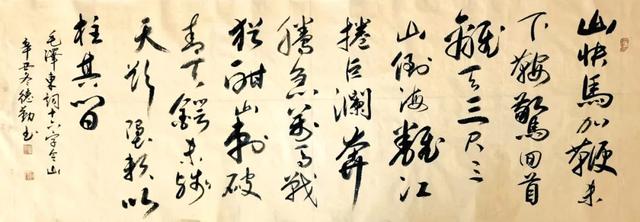 山快馬加鞭未
下鞍驚回首
離天三尺三
山倒海飜江
捲巨瀾奔
騰急萬馬戰
猶酣山刺破
青天鍔未殘
天欲墮賴以
柱其間
毛澤東詞十六字令山
辛丑冬德勤书